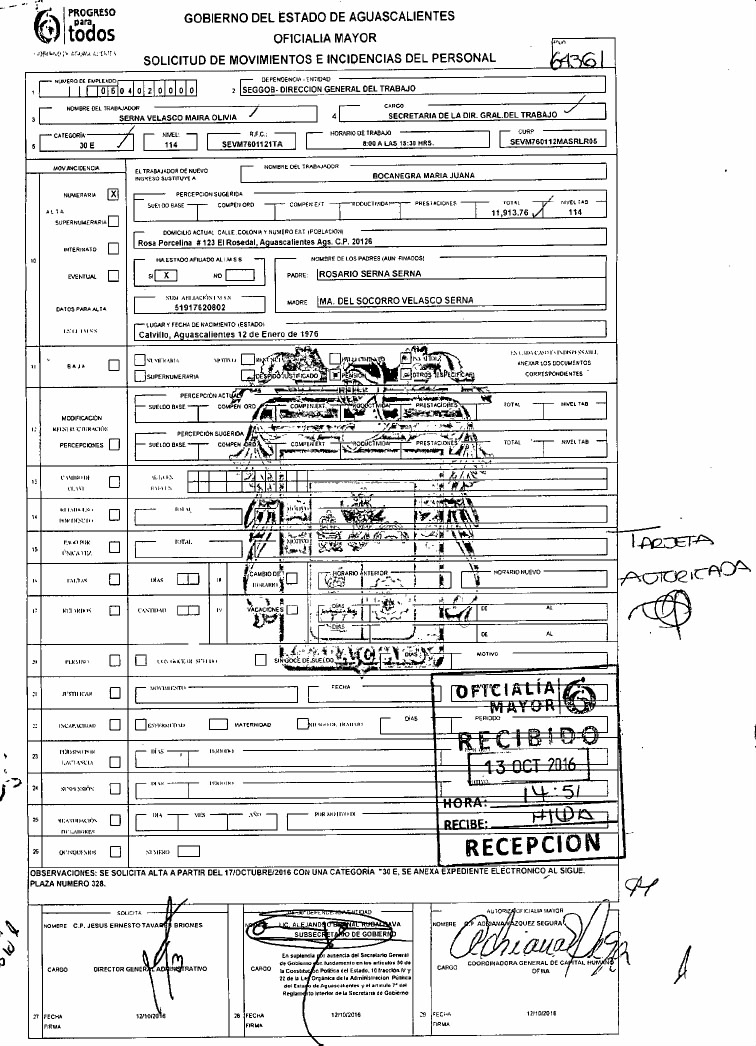 PROGRESO
para
todos
GOBIERNO DEL ESTADO DE AGUASCALIENTES
OFICIALIA MAYOR
SOLICITUD DE MOVIMIENTOS E INCIDENCIAS DEL PERSONAL
61361
NUMERO DE EMPLEADO
DEPENDENCIA - ENTIDAD
1 0 6 0 4 0 2 0 0 0 0
2 SEGGOB- DIRECCION GENERAL DEL TRABAJO
NOMBRE DEL TRABAJADOR
CARGO
3 SERNA VELASCO MAIRA OLIVIA
4 SECRETARIA DE LA DIR. GRAL.DEL TRABAJO
CATEGORÍA NIVEL: R.F.C.: HORARIO DE TRABAJO CURP
5 30 E 114 SEVM7601121TA 8:00 A LAS 18:30 HRS. SEVM760112MASRLR05
MOV.INCIDENCIA
EL TRABAJADOR DE NUEVO INGRESO SUSTITUYE A
NOMBRE DEL TRABAJADOR
BOCANEGRA MARIA JUANA
NUMERARIA X
PERCEPCION SUGERIDA
SUELDO BASE COMPEN ORD COMPEN EXT PRODUCTIVIDA PRESTACIONES TOTAL NIVEL TAB
ALTA
11,913.76 114
SUPERNUMERARIA
DOMICILIO ACTUAL CALLE, COLONIA Y NUMERO EXT (POBLACION)
Rosa Porcelina # 123 El Rosedal, Aguascalientes Ags. C.P. 20126
INTERINATO
10
HA ESTADO AFILIADO AL I M S S
NOMBRE DE LOS PADRES (AUN FINADOS)
EVENTUAL
SI X NO
PADRE: ROSARIO SERNA SERNA
NUM AFILIACIÓN I M S S
DATOS PARA ALTA
51917620802
MADRE MA. DEL SOCORRO VELASCO SERNA
LUGAR Y FECHA DE NACIMIENTO (ESTADO)
Calvillo, Aguascalientes 12 de Enero de 1976
11 BAJA
NUMERARIA MOTIVO
SUPERNUMERARIA DESPIDO JUSTIFICADO PENSION OTROS (ESPECIFICAR)
EN CADA CASO ES INDISPENSABLE
ANEXAR LOS DOCUMENTOS
CORRESPONDIENTES
PERCEPCION ACTUAL
SUELDO BASE COMPEN ORD COMPEN EXT PRODUCTIVIDA PRESTACIONES TOTAL NIVEL TAB
12 MODIFICACIÓN
RESTRUCTURACIÓN
PERCEPCIONES
PERCEPCION SUGERIDA
SUELDO BASE COMPEN ORD COMPEN EXT PRODUCTIVIDA PRESTACIONES TOTAL NIVEL TAB
13 CAMBIO DE
CLAVE
14 TOTAL MOTIVO
15 PAGO POR
ÚNICA VEZ
TOTAL MOTIVO
TARJETA
AUTORIZADA
16 FALTAS DÍAS 18 CAMBIO DE HORARIO HORARIO ANTERIOR HORARIO NUEVO
17 RETARDOS CANTIDAD 19 VACACIONES DÍAS DE AL
DÍAS DE AL
20 PERMISO CON GOCE DE SUELDO SIN GOCE DE SUELDO DÍAS MOTIVO
21 JUSTIFICAR MOVIMIENTO FECHA
22 INCAPACIDAD ENFERMEDAD MATERNIDAD RIESGO DE TRABAJO DÍAS PERIODO
23 PERMISO POR
LACTANCIA
DÍAS PERIODO
24 SUSPENSIÓN DÍAS PERIODO
25 REANUDACIÓN
DE LABORES
DIA MES AÑO POR MOTIVO DE
26 QUINQUENIOS NUMERO
OFICIALÍA
MAYOR
RECIBIDO
13 OCT 2016
HORA: 14:51
RECIBE: HILDA
RECEPCION
OBSERVACIONES: SE SOLICITA ALTA A PARTIR DEL 17/OCTUBRE/2016 CON UNA CATEGORIA "30 E, SE ANEXA EXPEDIENTE ELECTRONICO AL SIGUE.
PLAZA NUMERO 328.
SOLICITA
NOMBRE C.P. JESUS ERNESTO TAVARES BRIONES
CARGO DIRECTOR GENERAL ADMINISTRATIVO
27 FECHA 12/10/2016
FIRMA
SUBSECRETARIO DE GOBIERNO
En suplencia por ausencia del Secretario General
de Gobierno con fundamento en los artículos 50 de
la Constitución Política del Estado, 10 fracción IV y
22 de la Ley Orgánica de la Administración Pública
del Estado de Aguascalientes y el artículo 7º del
Reglamento Interior de la Secretaría de Gobierno
CARGO
28 FECHA 12/10/2016
FIRMA
AUTORIZA OFICIALIA MAYOR
NOMBRE C.P ADRIANA VAZQUEZ SEGURA
CARGO COORDINADORA GENERAL DE CAPITAL HUMANO
OFMA
29 FECHA 12/10/2016
FIRMA